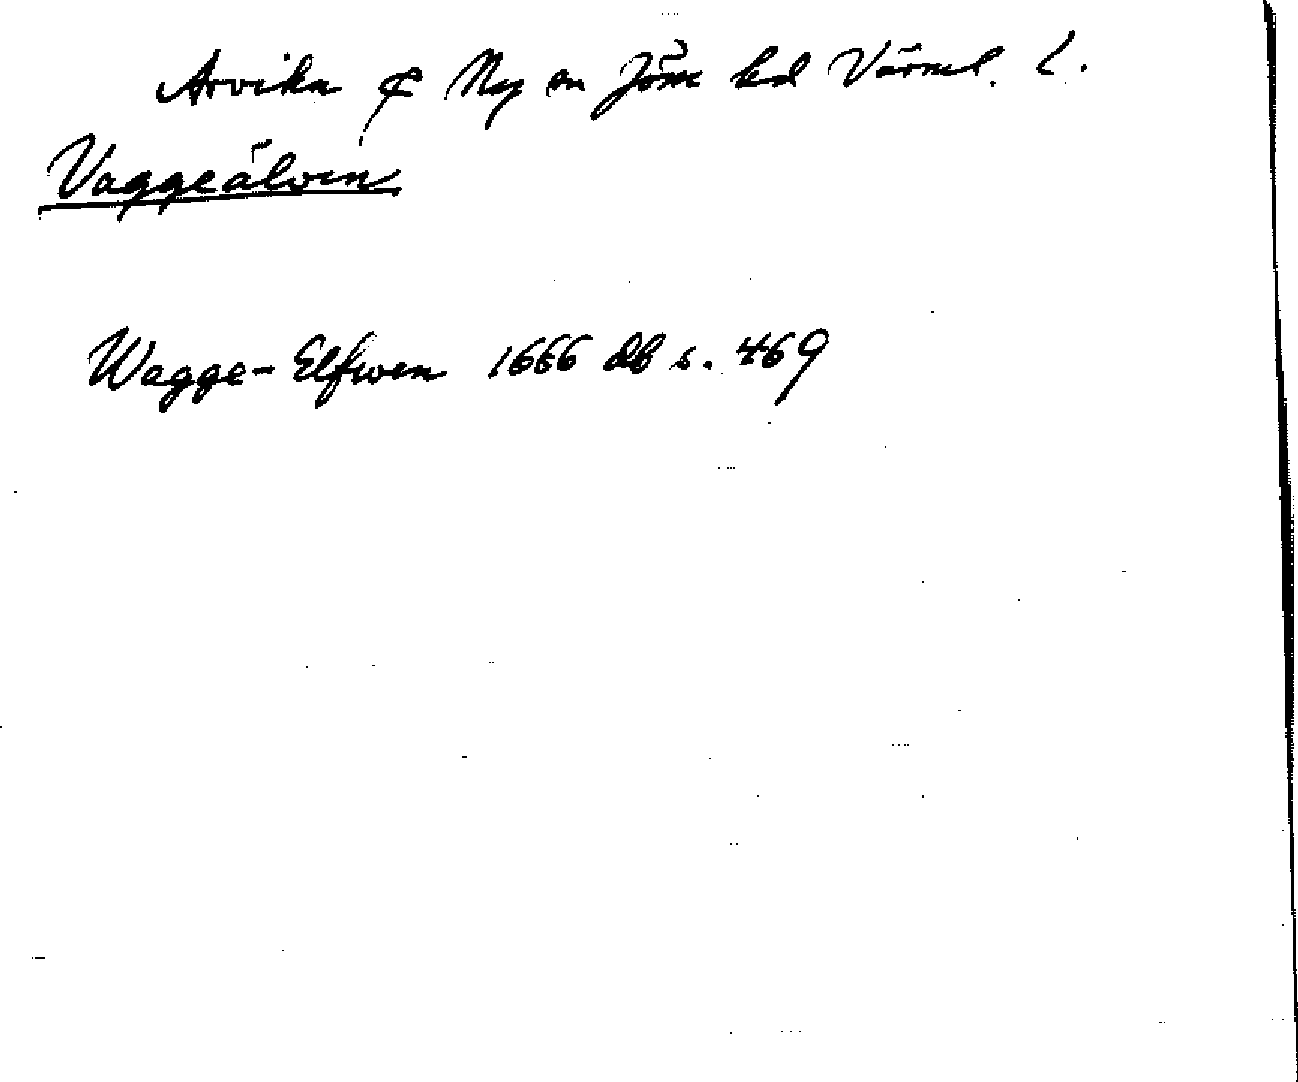 Arvika & Ny sn Jösse hd Värml. L.
Vaggeälven
Wagge-Elfwen 1666 db s. 469